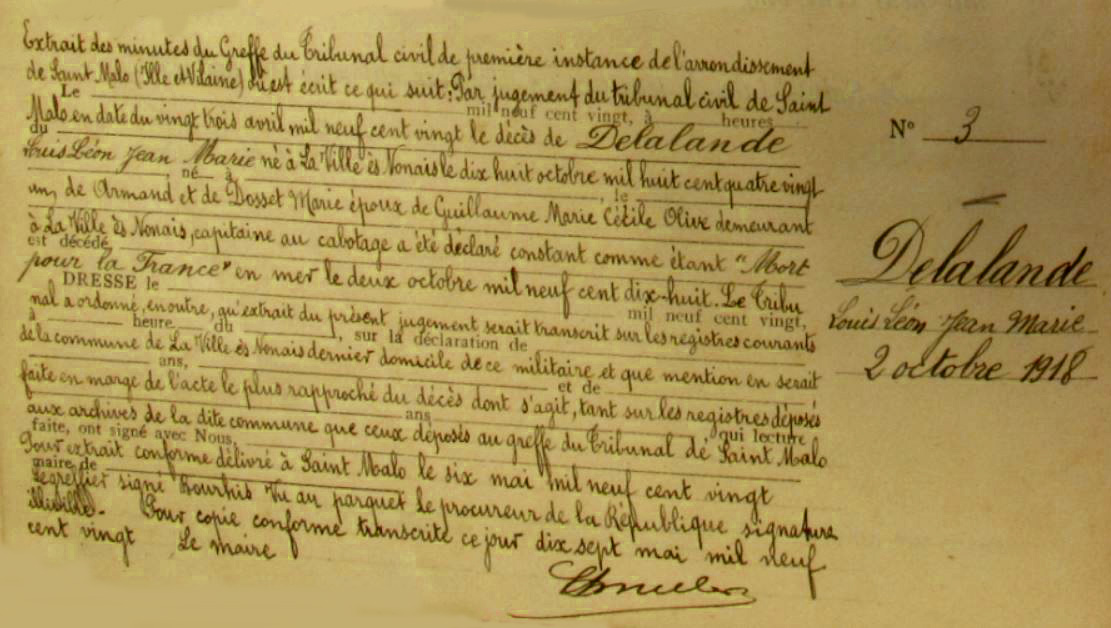 Extrait des minutes du Greffe du Tribunal civil de première instance de l'arrondissement
de Saint Malo (Ille et Vilaine) où est écrit ce qui suit : Par jugement du tribunal civil de Saint
Le mil neuf cent vingt, à heures
Malo en date du vingt trois avril mil neuf cent vingt le décès de Delalande
du
Louis Léon Jean Marie né à La Ville ès Nonais le dix huit octobre mil huit cent quatre vingt
né à , le
un, de Armand et de Dosset Marie époux de Guillaume Marie Cécile Olive demeurant
à La Ville ès Nonais, capitaine au cabotage a été déclaré constant comme étant "Mort
est décédé,
pour la France" en mer le deux octobre mil neuf cent dix-huit. Le Tribu
DRESSÉ le mil neuf cent vingt,
nal a ordonné, en outre, qu'extrait du présent jugement serait transcrit sur les registres courants
à heure du , sur la déclaration de
de la commune de La Ville ès Nonais dernier domicile de ce militaire et que mention en serait
ans,
faite en marge de l'acte le plus rapproché du décès dont s'agit, tant sur les registres déposés
et de
aux archives de la dite commune que ceux déposés au greffe du Tribunal de Saint Malo
ans qui lecture
faite, ont signé avec Nous,
Pour extrait conforme délivré à Saint Malo le six mai mil neuf cent vingt
maire de
Le greffier signé Bourhis Vu au parquet le procureur de la République signature
illisible. Pour copie conforme transcrite ce jour dix sept mai mil neuf
cent vingt Le maire
N° 3
Delalande
Louis Léon Jean Marie
2 octobre 1918